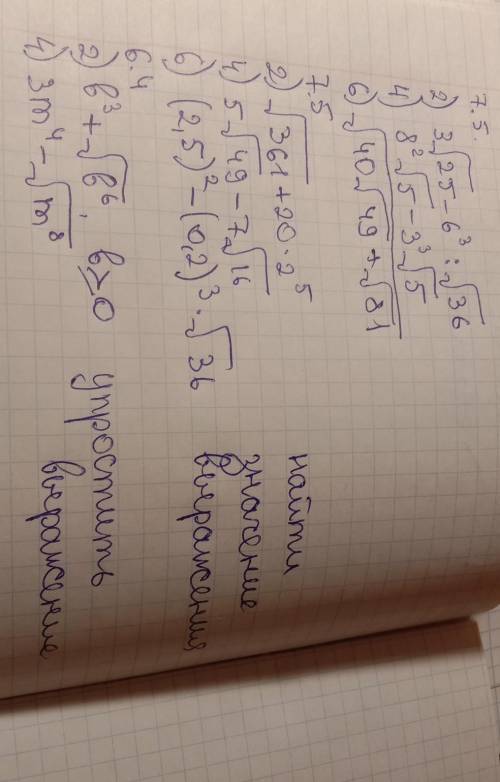 7.5.
2) 3√25 - 6³ : √36
4) 8²√5 - 3³√5
6) √40√49 + √81
7.5
2) √361 + 20·2⁵
4) 5√49 - 7√16
6) (2,5)² - (0,2)³ · √36
найти
значение
выражения
6.4
2) b³ + √b⁶, b ≥ 0
4) 3m⁴ - √m⁸
упростить
выражение